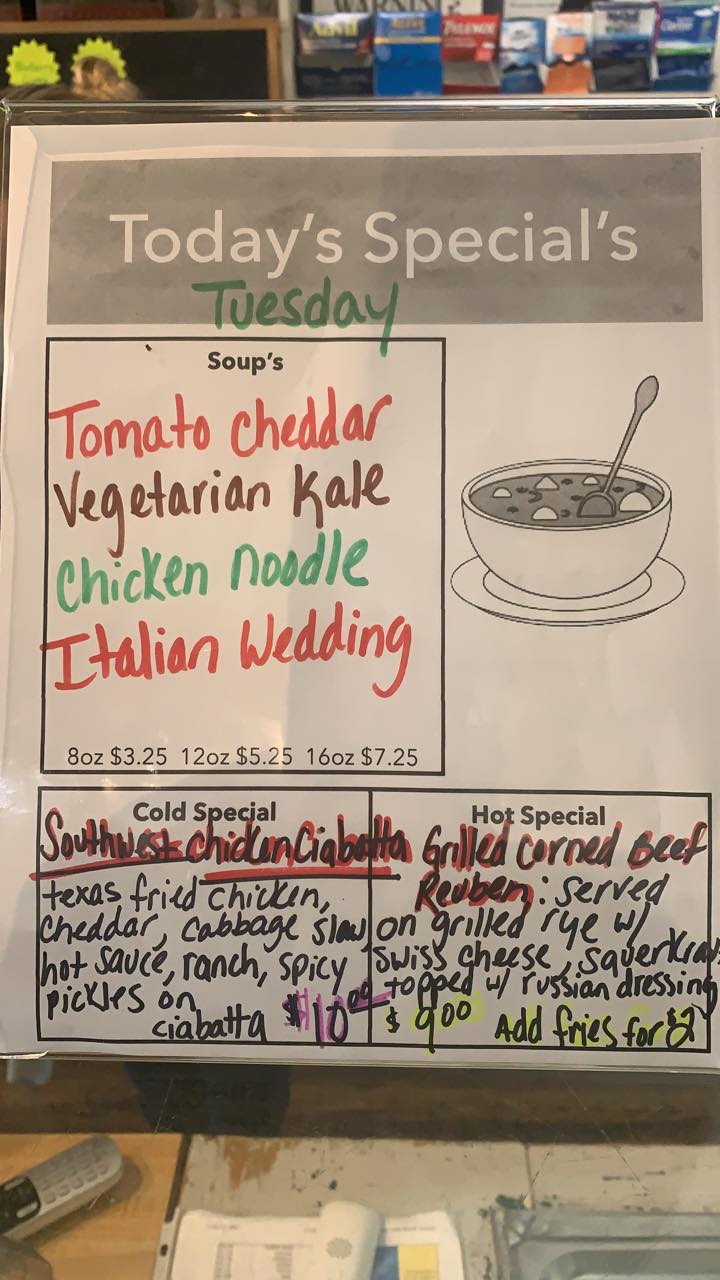 WARNIN
Advil
Aleve
TYLENOL
Today's Special's
Tuesday
Soup's
Tomato cheddar
Vegetarian Kale
Chicken noodle
Italian Wedding
8oz $3.25 12oz $5.25 16oz $7.25
Cold Special
Southwest chicken Ciabatta
texas fried chicken,
cheddar, cabbage slaw
hot sauce, ranch, spicy
pickles on
ciabatta $10.00
Hot Special
Grilled corned Beef
Reuben: served
on grilled rye w/
swiss cheese, squerkrau
topped w/ russian dressing
$9.00 Add fries for $2